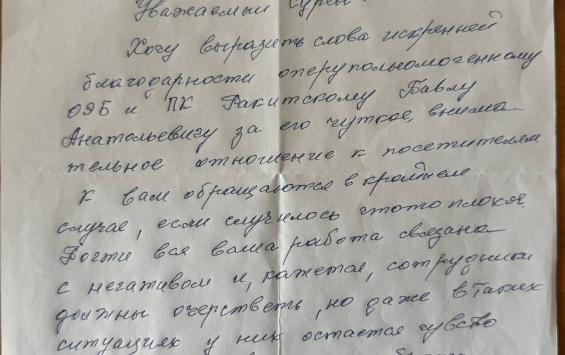 Уважаемый
Хочу выразить слова искренней
благодарности оперуполномоченному
ОЭБ и ПК Ракитскому Павлу
Анатольевичу за его чуткое, внима-
тельное отношение к посетителям
К вам обращаются в крайнем
случае, если случилось что-то плохое.
Почти вся ваша работа связана
с негативом и, кажется, сотрудники
должны очерстветь, но даже в таких
ситуациях у них остается чувство